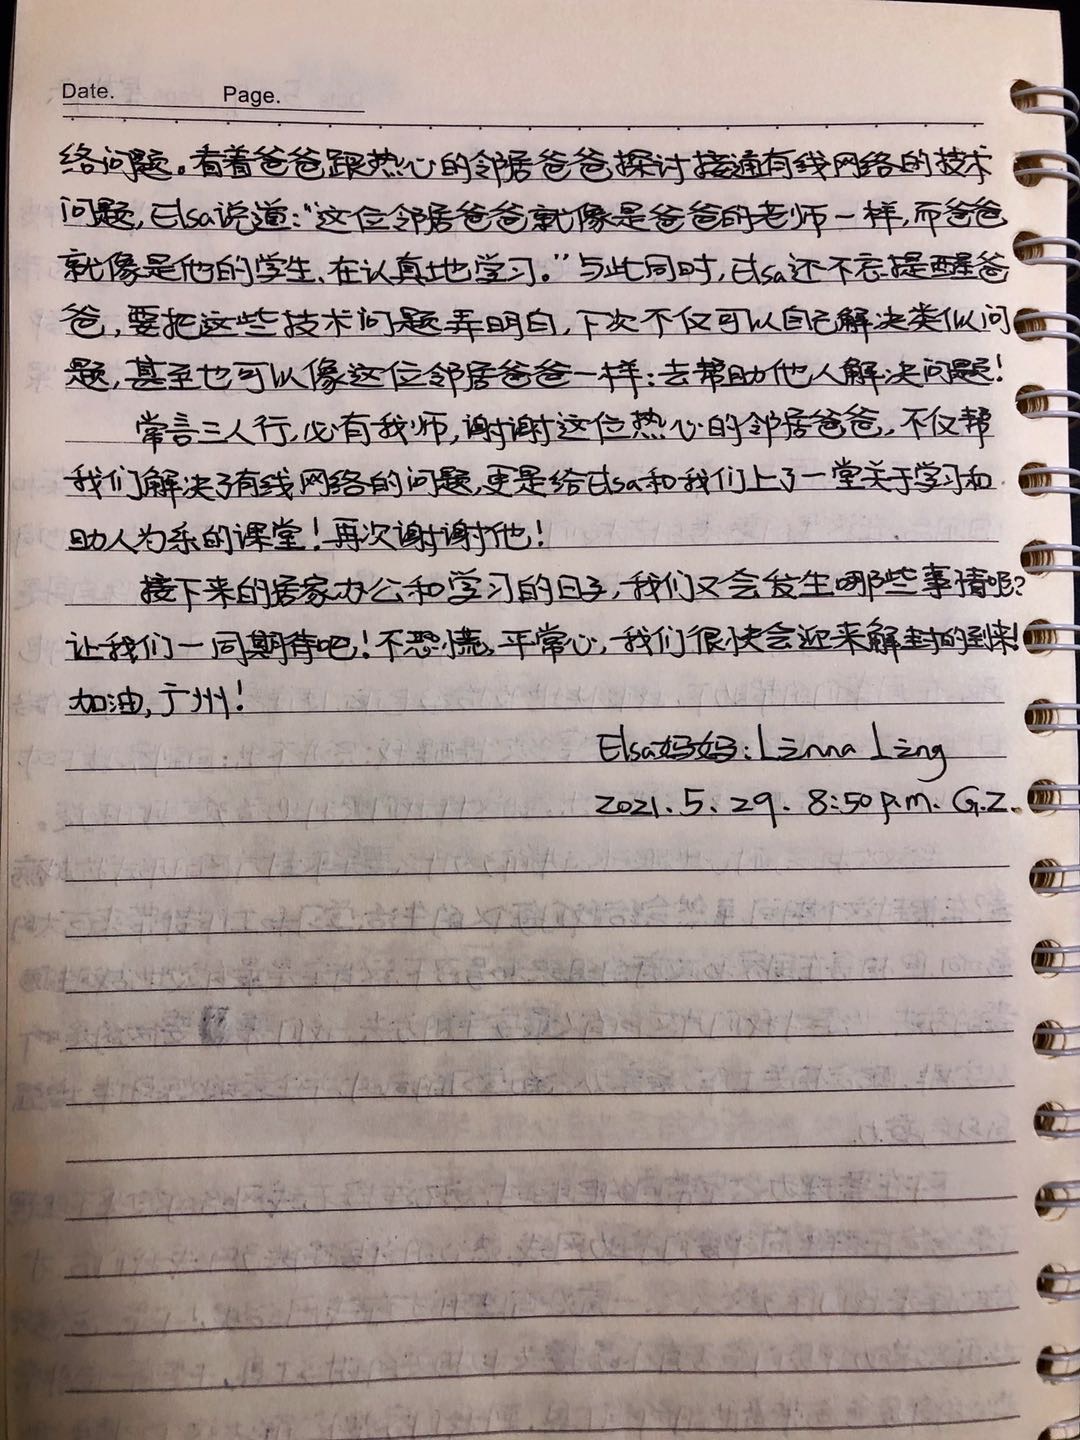 Date. Page.
络问题。看着爸爸跟热心的邻居爸爸探讨接通有线网络的技术
问题，Elsa说道：“这位邻居爸爸就像是爸爸的老师一样，而爸爸
就像是他的学生、在认真地学习。”与此同时，Elsa还不忘提醒爸
爸，要把这些技术问题弄明白，下次不仅可以自己解决类似问
题，甚至也可以像这位邻居爸爸一样：去帮助他人解决问题！
常言三人行，必有我师，谢谢这位热心的邻居爸爸，不仅帮
我们解决了有线网络的问题，更是给Elsa和我们上了一堂关于学习和
助人为乐的课堂！再次谢谢他！
接下来的居家办公和学习的日子，我们又会发生哪些事情呢？
让我们一同期待吧！不恐慌，平常心，我们很快会迎来解封的到来！
加油，广州！
Elsa妈妈：Linna Ling
2021.5.29. 8:50 p.m. G.Z.